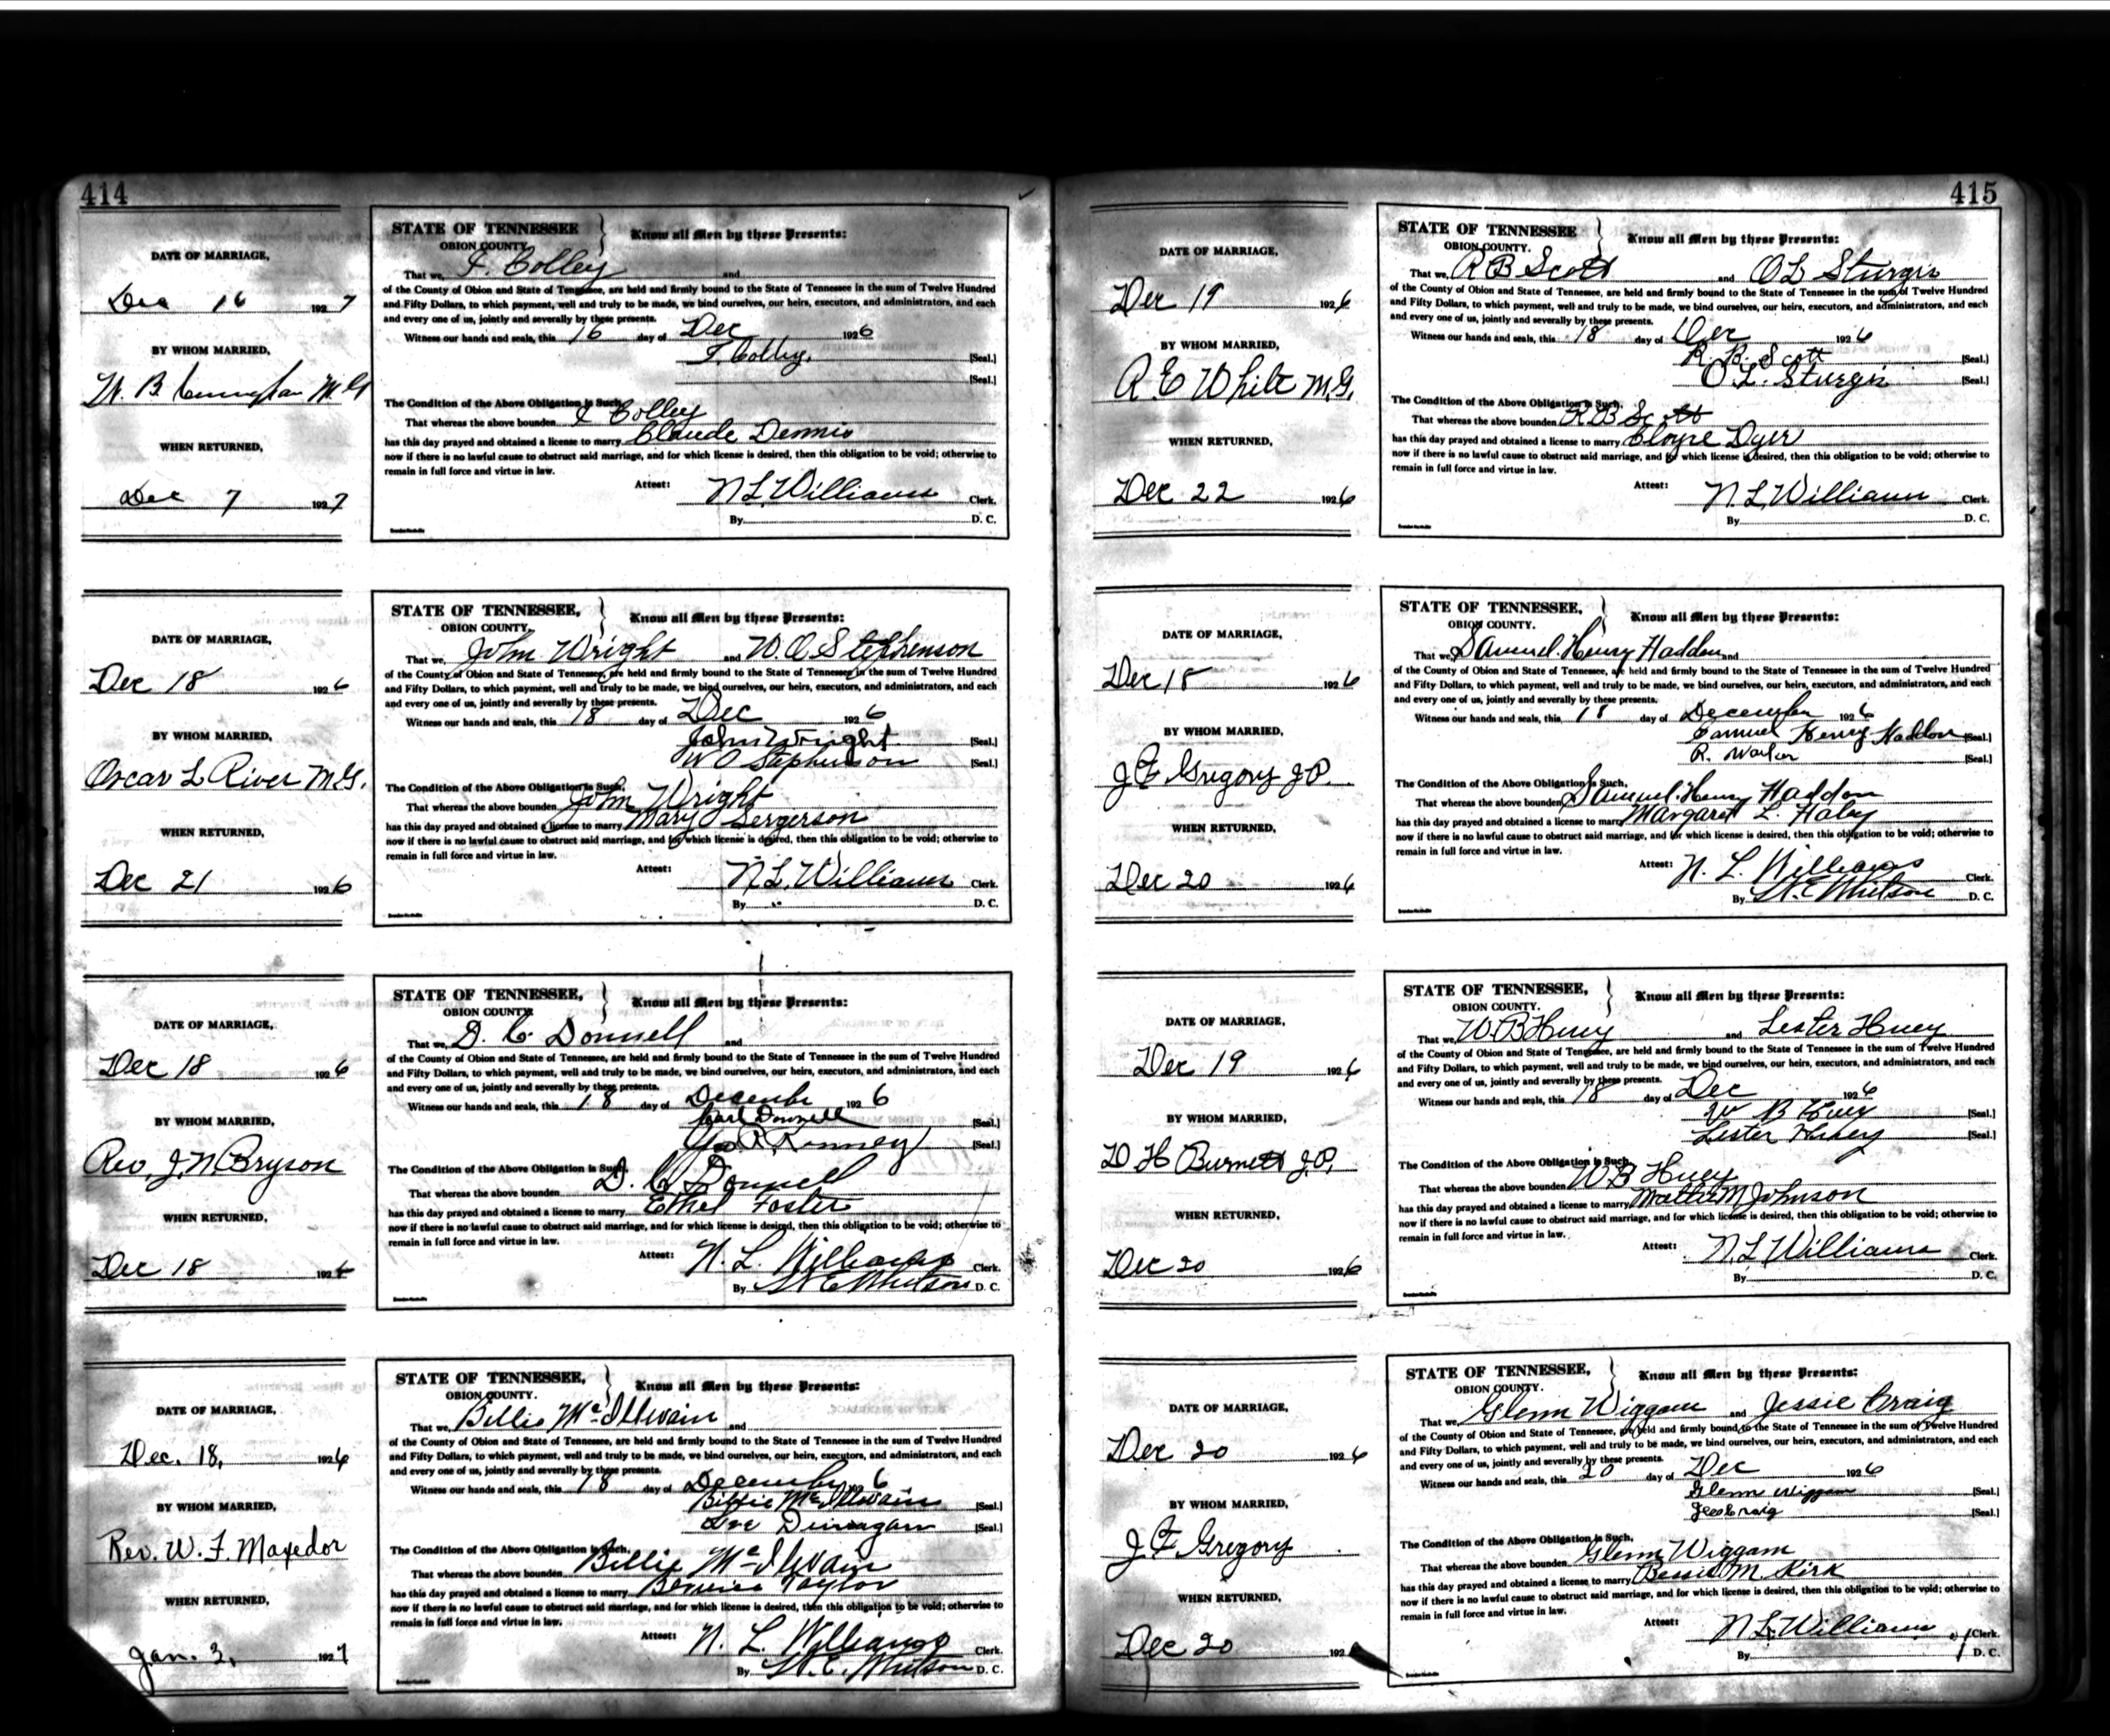 414
DATE OF MARRIAGE,
Dec 16 1927
BY WHOM MARRIED,
W. B. M. G
WHEN RETURNED,
Dec 7 1927
STATE OF TENNESSEE
OBION COUNTY.
Know all Men by these Presents:
That we, I. Colley and
of the County of Obion and State of Tennessee, are held and firmly bound to the State of Tennessee in the sum of Twelve Hundred
and Fifty Dollars, to which payment, well and truly to be made, we bind ourselves, our heirs, executors, and administrators, and each
and every one of us, jointly and severally by these presents.
Witness our hands and seals, this 16 day of Dec 1926
I. Colley. [Seal.]
[Seal.]
The Condition of the Above Obligation is Such,
That whereas the above bounden I Colley
has this day prayed and obtained a license to marry Claude Dennis
now if there is no lawful cause to obstruct said marriage, and for which license is desired, then this obligation to be void; otherwise to
remain in full force and virtue in law.
Attest: N. L. Williams Clerk.
By D. C.
DATE OF MARRIAGE,
Dec 18 1926
BY WHOM MARRIED,
Oscar L River M.G.
WHEN RETURNED,
Dec 21 1926
STATE OF TENNESSEE,
OBION COUNTY.
Know all Men by these Presents:
That we, John Wright and W. O Stephenson
of the County of Obion and State of Tennessee, are held and firmly bound to the State of Tennessee in the sum of Twelve Hundred
and Fifty Dollars, to which payment, well and truly to be made, we bind ourselves, our heirs, executors, and administrators, and each
and every one of us, jointly and severally by these presents.
Witness our hands and seals, this 18 day of Dec 1926
John Wright [Seal.]
W O Stephenson [Seal.]
The Condition of the Above Obligation is Such,
That whereas the above bounden John Wright
has this day prayed and obtained a license to marry Mary Sergerson
now if there is no lawful cause to obstruct said marriage, and for which license is desired, then this obligation to be void; otherwise to
remain in full force and virtue in law.
Attest: N. L. Williams Clerk.
By D. C.
DATE OF MARRIAGE,
Dec 18 1926
BY WHOM MARRIED,
Rev. J. N Bryson
WHEN RETURNED,
Dec 18 1926
STATE OF TENNESSEE,
OBION COUNTY
Know all Men by these Presents:
That we, D. C Donnell and
of the County of Obion and State of Tennessee, are held and firmly bound to the State of Tennessee in the sum of Twelve Hundred
and Fifty Dollars, to which payment, well and truly to be made, we bind ourselves, our heirs, executors, and administrators, and each
and every one of us, jointly and severally by these presents.
Witness our hands and seals, this 18 day of Decembe 1926
Carl Donnell [Seal.]
R. Ranney [Seal.]
The Condition of the Above Obligation is Such,
That whereas the above bounden D. C Donnell
has this day prayed and obtained a license to marry Ethel Foster
now if there is no lawful cause to obstruct said marriage, and for which license is desired, then this obligation to be void; otherwise to
remain in full force and virtue in law.
Attest: N. L. Williams Clerk.
By D. C.
DATE OF MARRIAGE,
Dec. 18, 1926
BY WHOM MARRIED,
Rev. W. F. Maxedor
WHEN RETURNED,
Jan. 3, 1927
STATE OF TENNESSEE,
OBION COUNTY.
Know all Men by these Presents:
That we, Billie McIllwain and
of the County of Obion and State of Tennessee, are held and firmly bound to the State of Tennessee in the sum of Twelve Hundred
and Fifty Dollars, to which payment, well and truly to be made, we bind ourselves, our heirs, executors, and administrators, and each
and every one of us, jointly and severally by these presents.
Witness our hands and seals, this 18 day of December 1926
Billie McIllwain [Seal.]
[Seal.]
The Condition of the Above Obligation is Such,
That whereas the above bounden Billie McIllwain
has this day prayed and obtained a license to marry Bernice Taylor
now if there is no lawful cause to obstruct said marriage, and for which license is desired, then this obligation to be void; otherwise to
remain in full force and virtue in law.
Attest: N. L. Williams Clerk.
By D. C.
415
DATE OF MARRIAGE,
Dec 19 1926
BY WHOM MARRIED,
R E White M.G.
WHEN RETURNED,
Dec 22 1926
STATE OF TENNESSEE
OBION COUNTY.
Know all Men by these Presents:
That we, R B Scott and O L Sturgis
of the County of Obion and State of Tennessee, are held and firmly bound to the State of Tennessee in the sum of Twelve Hundred
and Fifty Dollars, to which payment, well and truly to be made, we bind ourselves, our heirs, executors, and administrators, and each
and every one of us, jointly and severally by these presents.
Witness our hands and seals, this 18 day of Dec 1926
R. B. Scott [Seal.]
O L. Sturgis [Seal.]
The Condition of the Above Obligation is Such,
That whereas the above bounden R B Scott
has this day prayed and obtained a license to marry Eloyse Dyer
now if there is no lawful cause to obstruct said marriage, and for which license is desired, then this obligation to be void; otherwise to
remain in full force and virtue in law.
Attest: N. L. Williams Clerk.
By D. C.
DATE OF MARRIAGE,
Dec 18 1926
BY WHOM MARRIED,
J F Gregory J.P.
WHEN RETURNED,
Dec 20 1926
STATE OF TENNESSEE,
OBION COUNTY.
Know all Men by these Presents:
That we, Samuel Henry Haddon and
of the County of Obion and State of Tennessee, are held and firmly bound to the State of Tennessee in the sum of Twelve Hundred
and Fifty Dollars, to which payment, well and truly to be made, we bind ourselves, our heirs, executors, and administrators, and each
and every one of us, jointly and severally by these presents.
Witness our hands and seals, this 18 day of December 1926
Samuel Henry Haddon [Seal.]
R. [Seal.]
The Condition of the Above Obligation is Such,
That whereas the above bounden Samuel Henry Haddon
has this day prayed and obtained a license to marry Margaret L. Haley
now if there is no lawful cause to obstruct said marriage, and for which license is desired, then this obligation to be void; otherwise to
remain in full force and virtue in law.
Attest: N. L. Williams Clerk.
By D. C.
DATE OF MARRIAGE,
Dec 19 1926
BY WHOM MARRIED,
D H Burnett J.P.
WHEN RETURNED,
Dec 20 1926
STATE OF TENNESSEE,
OBION COUNTY.
Know all Men by these Presents:
That we, W. B Huey and Lester Huey
of the County of Obion and State of Tennessee, are held and firmly bound to the State of Tennessee in the sum of Twelve Hundred
and Fifty Dollars, to which payment, well and truly to be made, we bind ourselves, our heirs, executors, and administrators, and each
and every one of us, jointly and severally by these presents.
Witness our hands and seals, this 18 day of Dec 1926
W B Huey [Seal.]
Lester Huey [Seal.]
The Condition of the Above Obligation is Such,
That whereas the above bounden W B Huey
has this day prayed and obtained a license to marry Mattie M Johnson
now if there is no lawful cause to obstruct said marriage, and for which license is desired, then this obligation to be void; otherwise to
remain in full force and virtue in law.
Attest: N. L. Williams Clerk.
By D. C.
DATE OF MARRIAGE,
Dec 20 1926
BY WHOM MARRIED,
J F Gregory
WHEN RETURNED,
Dec 20 192
STATE OF TENNESSEE,
OBION COUNTY.
Know all Men by these Presents:
That we, Glenn Wiggam and Jessie Craig
of the County of Obion and State of Tennessee, are held and firmly bound to the State of Tennessee in the sum of Twelve Hundred
and Fifty Dollars, to which payment, well and truly to be made, we bind ourselves, our heirs, executors, and administrators, and each
and every one of us, jointly and severally by these presents.
Witness our hands and seals, this 20 day of Dec 1926
Glenn Wiggam [Seal.]
Jess Craig [Seal.]
The Condition of the Above Obligation is Such,
That whereas the above bounden Glenn Wiggam
has this day prayed and obtained a license to marry Bessie M Kirk
now if there is no lawful cause to obstruct said marriage, and for which license is desired, then this obligation to be void; otherwise to
remain in full force and virtue in law.
Attest: N. L. Williams Clerk.
By D. C.